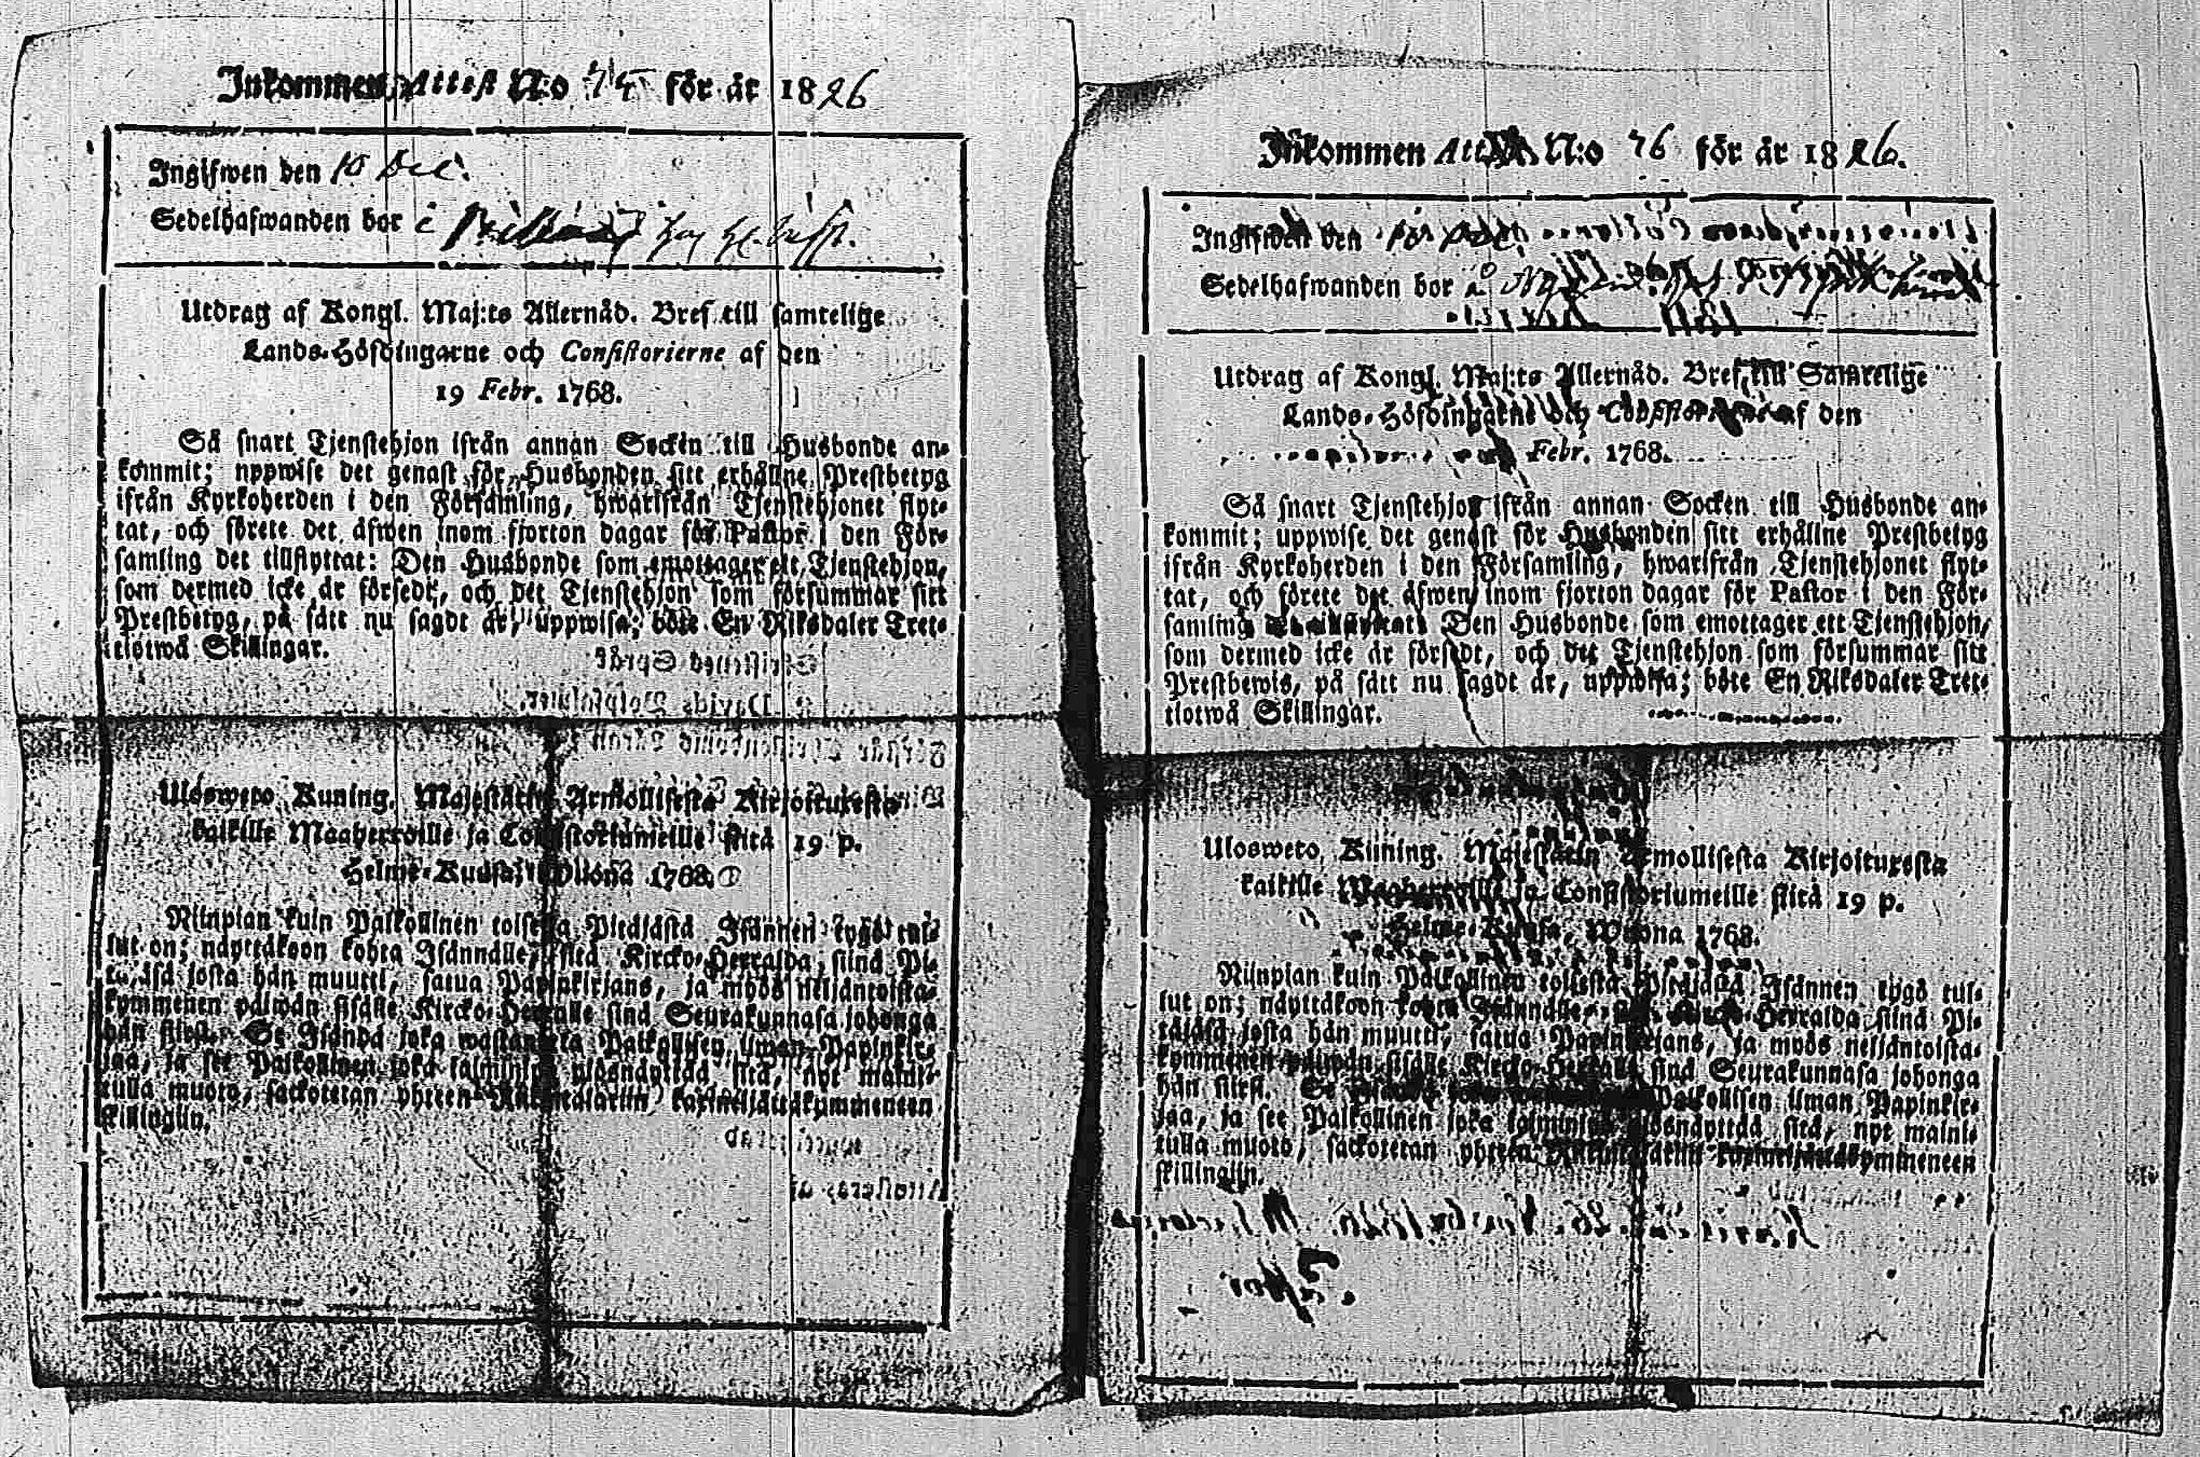 Inkommen Attest N:o 75 för år 1826
Ingifwen den 10 Dec.
Sedelhafwanden bor i
Utdrag af Kongl. Maj:ts Allernåd. Bref till samtelige
Lands-Höfdingarne och Consistorierne af den
19 Febr. 1768.
Så snart Tjenstehjon ifrån annan Socken till Husbonde an-
kommit; uppwise det genast för Husbonden sitt erhållne Prestbetyg
ifrån Kyrkoherden i den Församling, hwarifrån Tjenstehjonet flyt-
tat, och förete det äfwen inom fjorton dagar för Pastor i den För-
samling det tillflyttat: Den Husbonde som emottager ett Tjenstehjon,
som dermed icke är försedt, och det Tjenstehjon som försummar sitt
Prestbetyg, på sätt nu sagdt är, uppwisa; böte En Riksdaler Tret-
tiotwå Skillingar.
Ulosweto Kuning. Majestätin Armollisesta Kirjoituxesta
kaikille Maaherroille ja Consistoriumeille siitä 19 p.
Helme-Kuusa, Wuona 1768.
Niinpian kuin Palkollinen toisesta Pitäjästä Isännen tygö tul-
lut on; näyttäkoon kohta Isännälle, sitä Kircko-Herralda, siinä Pi-
täjäsä josta hän muutti, saatua Papinkirjans, ja myös neljäntoista-
kymmenen päiwän sisälle Kircko-Herralle siinä Seurakunnasa johonga
hän siirsi. Se Isändä joka wastanotta Palkollisen ilman Papinkir-
jaa, ja see Palkollinen joka laiminlyö ulosnäyttää sitä, nyt maini-
tulla muoto, sackotetan yhteen Riikintalariin kaxineljättäkymmeneen
skillingiin.
Inkommen Att N:o 76 för år 1826.
Ingifwen den
Sedelhafwanden bor å
Utdrag af Kongl. Maj:ts Allernåd. Bref till Samtelige
Lands-Höfdingarne och Consistorierne af den
Febr. 1768.
Så snart Tjenstehjon ifrån annan Socken till Husbonde an-
kommit; uppwise det genast för Husbonden sitt erhållne Prestbetyg
ifrån Kyrkoherden i den Församling, hwarifrån Tjenstehjonet flyt-
tat, och förete det äfwen inom fjorton dagar för Pastor i den För-
samling det tillflyttat: Den Husbonde som emottager ett Tjenstehjon,
som dermed icke är försedt, och det Tjenstehjon som försummar sitt
Prestbewis, på sätt nu sagdt är, uppwisa; böte En Riksdaler Tret-
tiotwå Skillingar.
Ulosweto, Kuning. Majestätin Armollisesta Kirjoituxesta
kaikille Maaherroille ja Consistoriumeille siitä 19 p.
Helme-Kuusa, Wuona 1768.
Niinpian kuin Palkollinen toisesta Pitäjästä Isännen tygö tul-
lut on; näyttäkoon kohta Isännälle, Kircko-Herralda, siinä Pi-
täjäsä josta hän muutti, saatua Papinkirjans, ja myös neljäntoista-
kymmenen päiwän sisälle Kircko-Herralle siinä Seurakunnasa johonga
hän siirsi. Se Palkollisen ilman Papinkir-
jaa, ja see Palkollinen joka laiminlyö ulosnäyttää sitä, nyt maini-
tulla muoto, sackotetan yhteen Riikintalariin kaxineljättäkymmeneen
skillingiin.